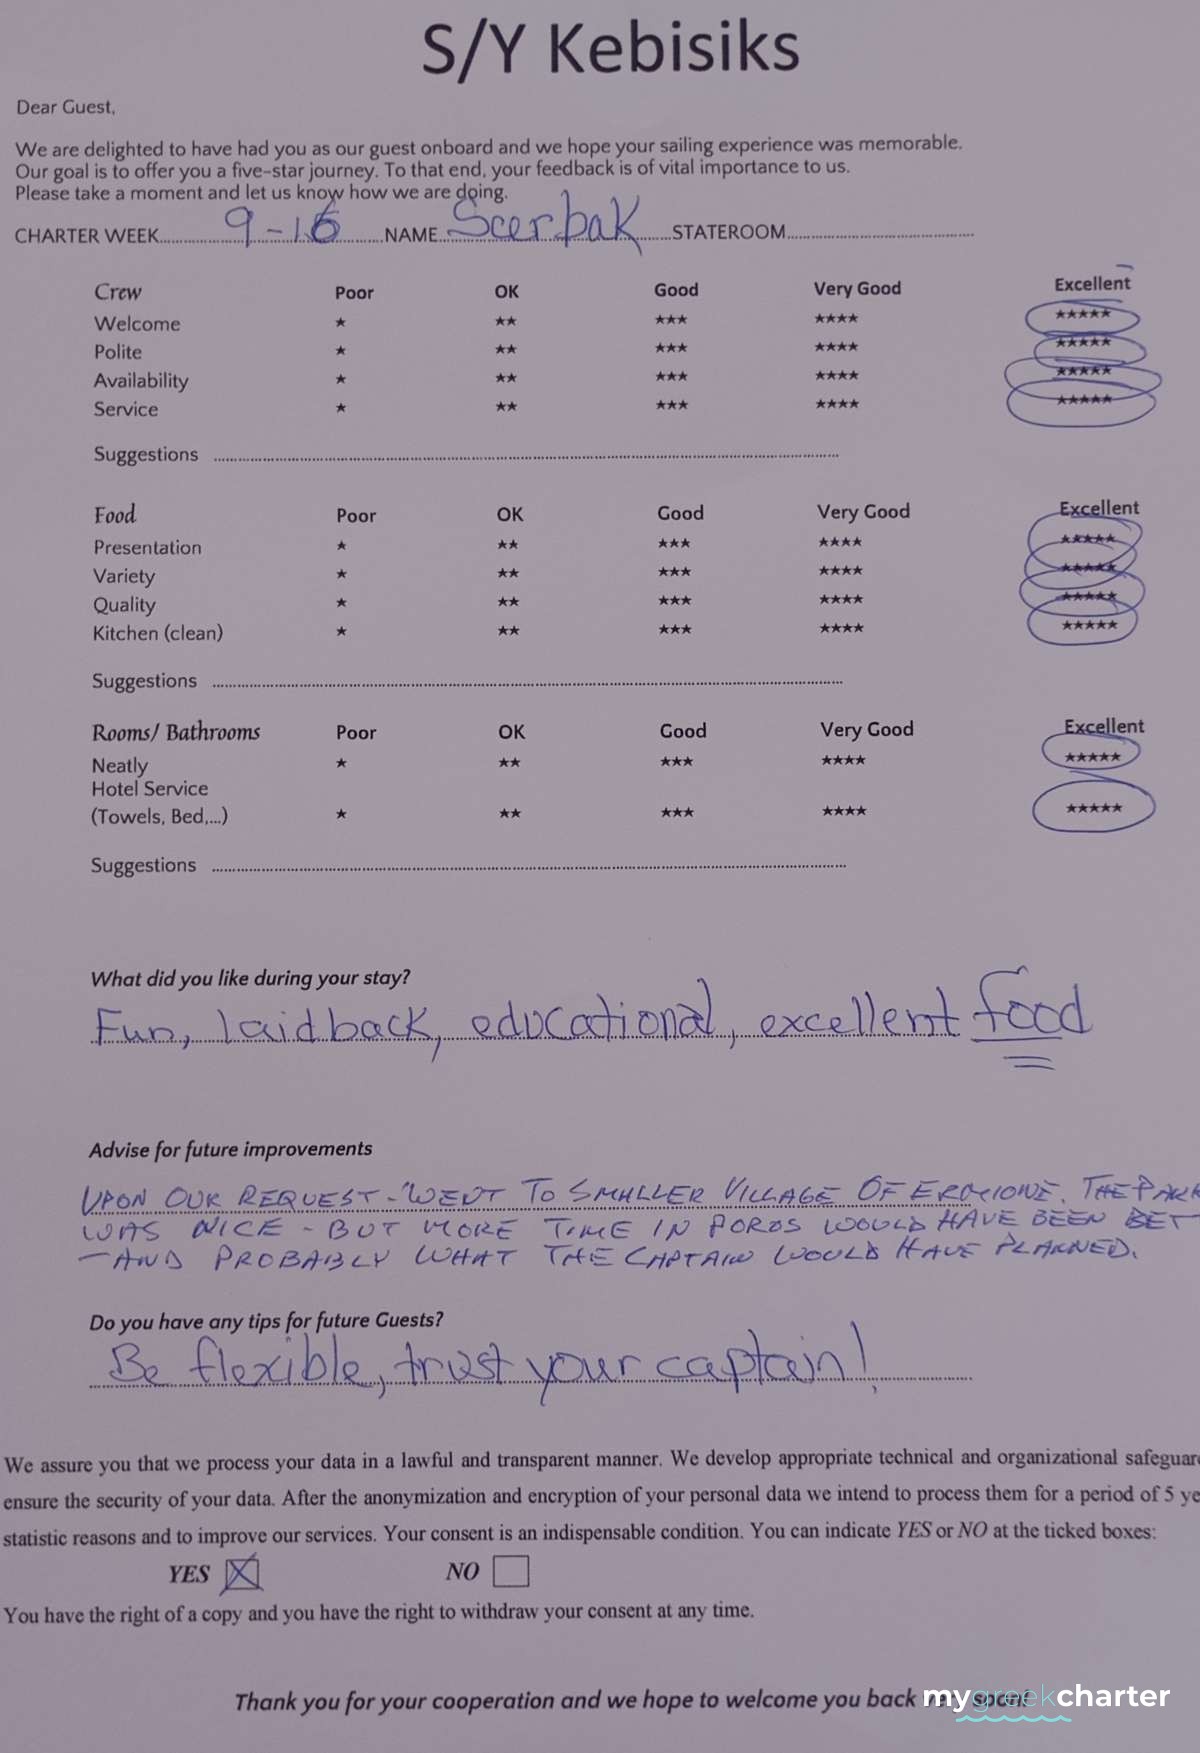 S/Y Kebisiks
Dear Guest,
We are delighted to have had you as our guest onboard and we hope your sailing experience was memorable.
Our goal is to offer you a five-star journey. To that end, your feedback is of vital importance to us.
Please take a moment and let us know how we are doing.
CHARTER WEEK 9-16 NAME Scerbak STATEROOM
Crew Poor OK Good Very Good Excellent
Welcome ★ ★★ ★★★ ★★★★ ★★★★★
Polite ★ ★★ ★★★ ★★★★ ★★★★★
Availability ★ ★★ ★★★ ★★★★ ★★★★★
Service ★ ★★ ★★★ ★★★★ ★★★★★
Suggestions
Food Poor OK Good Very Good Excellent
Presentation ★ ★★ ★★★ ★★★★ ★★★★★
Variety ★ ★★ ★★★ ★★★★ ★★★★★
Quality ★ ★★ ★★★ ★★★★ ★★★★★
Kitchen (clean) ★ ★★ ★★★ ★★★★ ★★★★★
Suggestions
Rooms/ Bathrooms Poor OK Good Very Good Excellent
Neatly ★ ★★ ★★★ ★★★★ ★★★★★
Hotel Service
(Towels, Bed,...) ★ ★★ ★★★ ★★★★ ★★★★★
Suggestions
What did you like during your stay?
Fun, laid back, educational, excellent food
Advise for future improvements
UPON OUR REQUEST - WENT TO SMALLER VILLAGE OF ERMIONE. THE PARK
WAS NICE - BUT MORE TIME IN POROS WOULD HAVE BEEN BET
- AND PROBABLY WHAT THE CAPTAIN WOULD HAVE PLANNED.
Do you have any tips for future Guests?
Be flexible, trust your captain!
We assure you that we process your data in a lawful and transparent manner. We develop appropriate technical and organizational safeguar
ensure the security of your data. After the anonymization and encryption of your personal data we intend to process them for a period of 5 ye
statistic reasons and to improve our services. Your consent is an indispensable condition. You can indicate YES or NO at the ticked boxes:
YES NO
You have the right of a copy and you have the right to withdraw your consent at any time.
Thank you for your cooperation and we hope to welcome you back
mygreekcharter